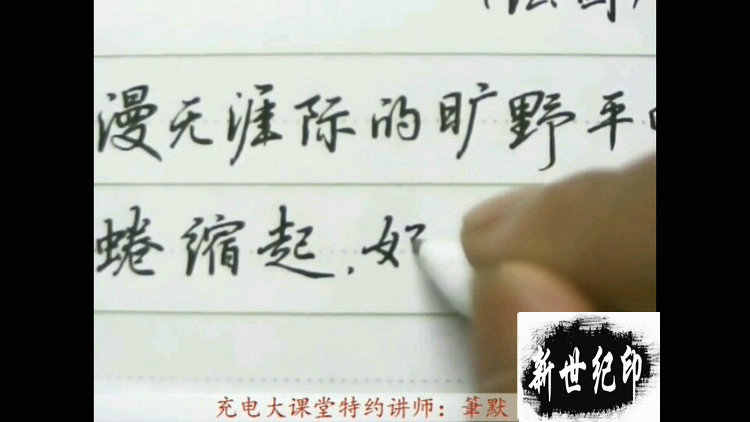 漫无涯际的旷野平
蜷缩起,好
充电大课堂特约讲师：筆默
新世纪印